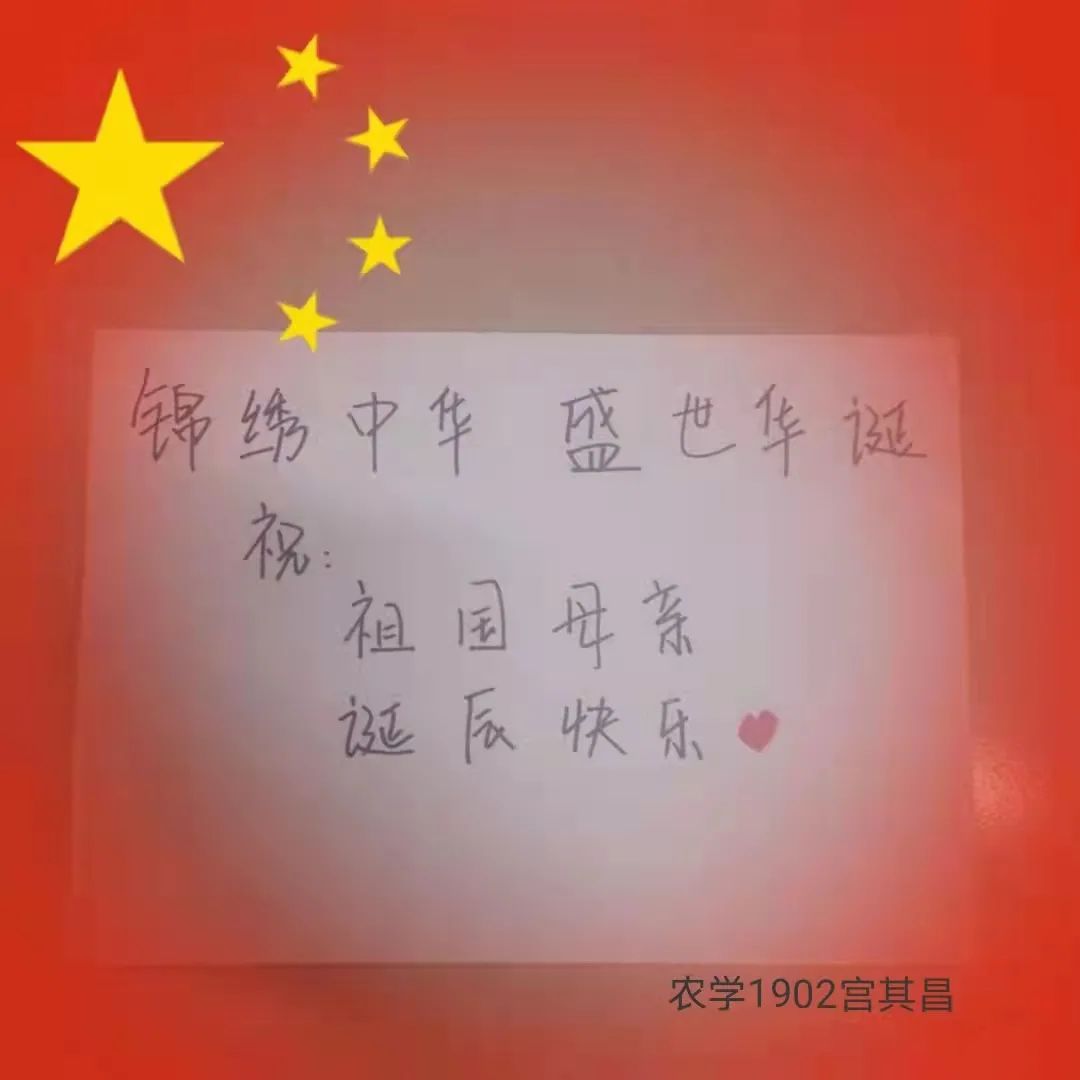 锦绣中华 盛世华诞
祝:
祖国母亲
诞辰快乐
农学1902宫其昌